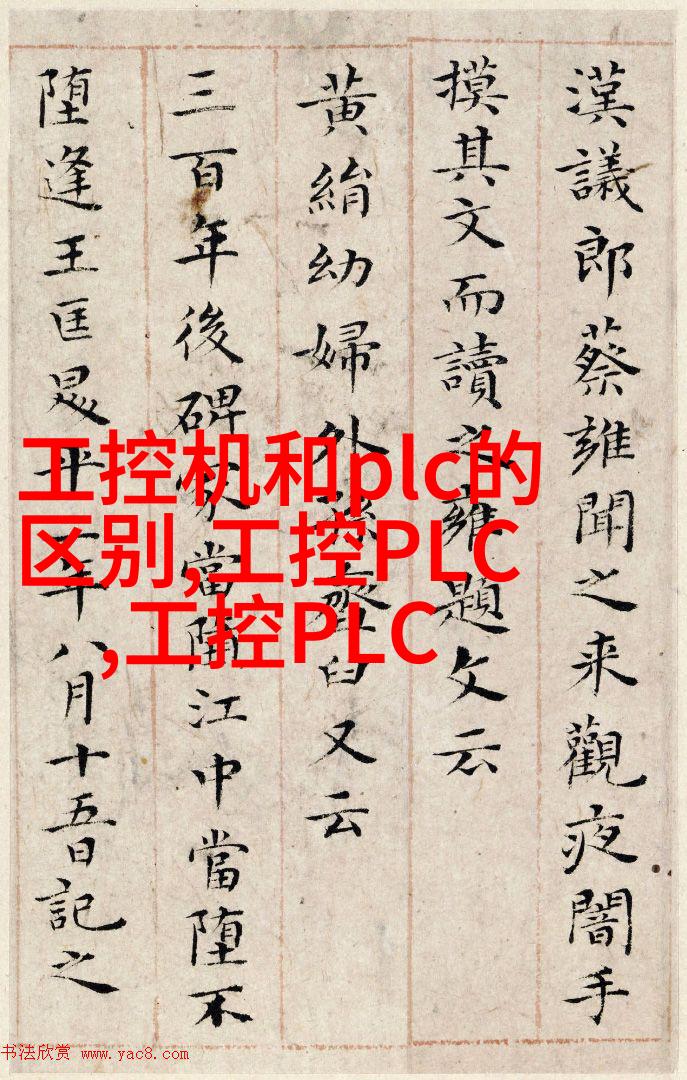 漢議郎蔡雍聞之来觀夜闇手
摸其文而讀之雍題文云
黄絹幼婦外孫齏臼又云
三百年後碑冢當堕江中當堕不
堕逢王叵昇平二年八月十五日記之
工控机和plc的
区别,工控PLC
,工控PLC
书法欣赏 www.yac8.com